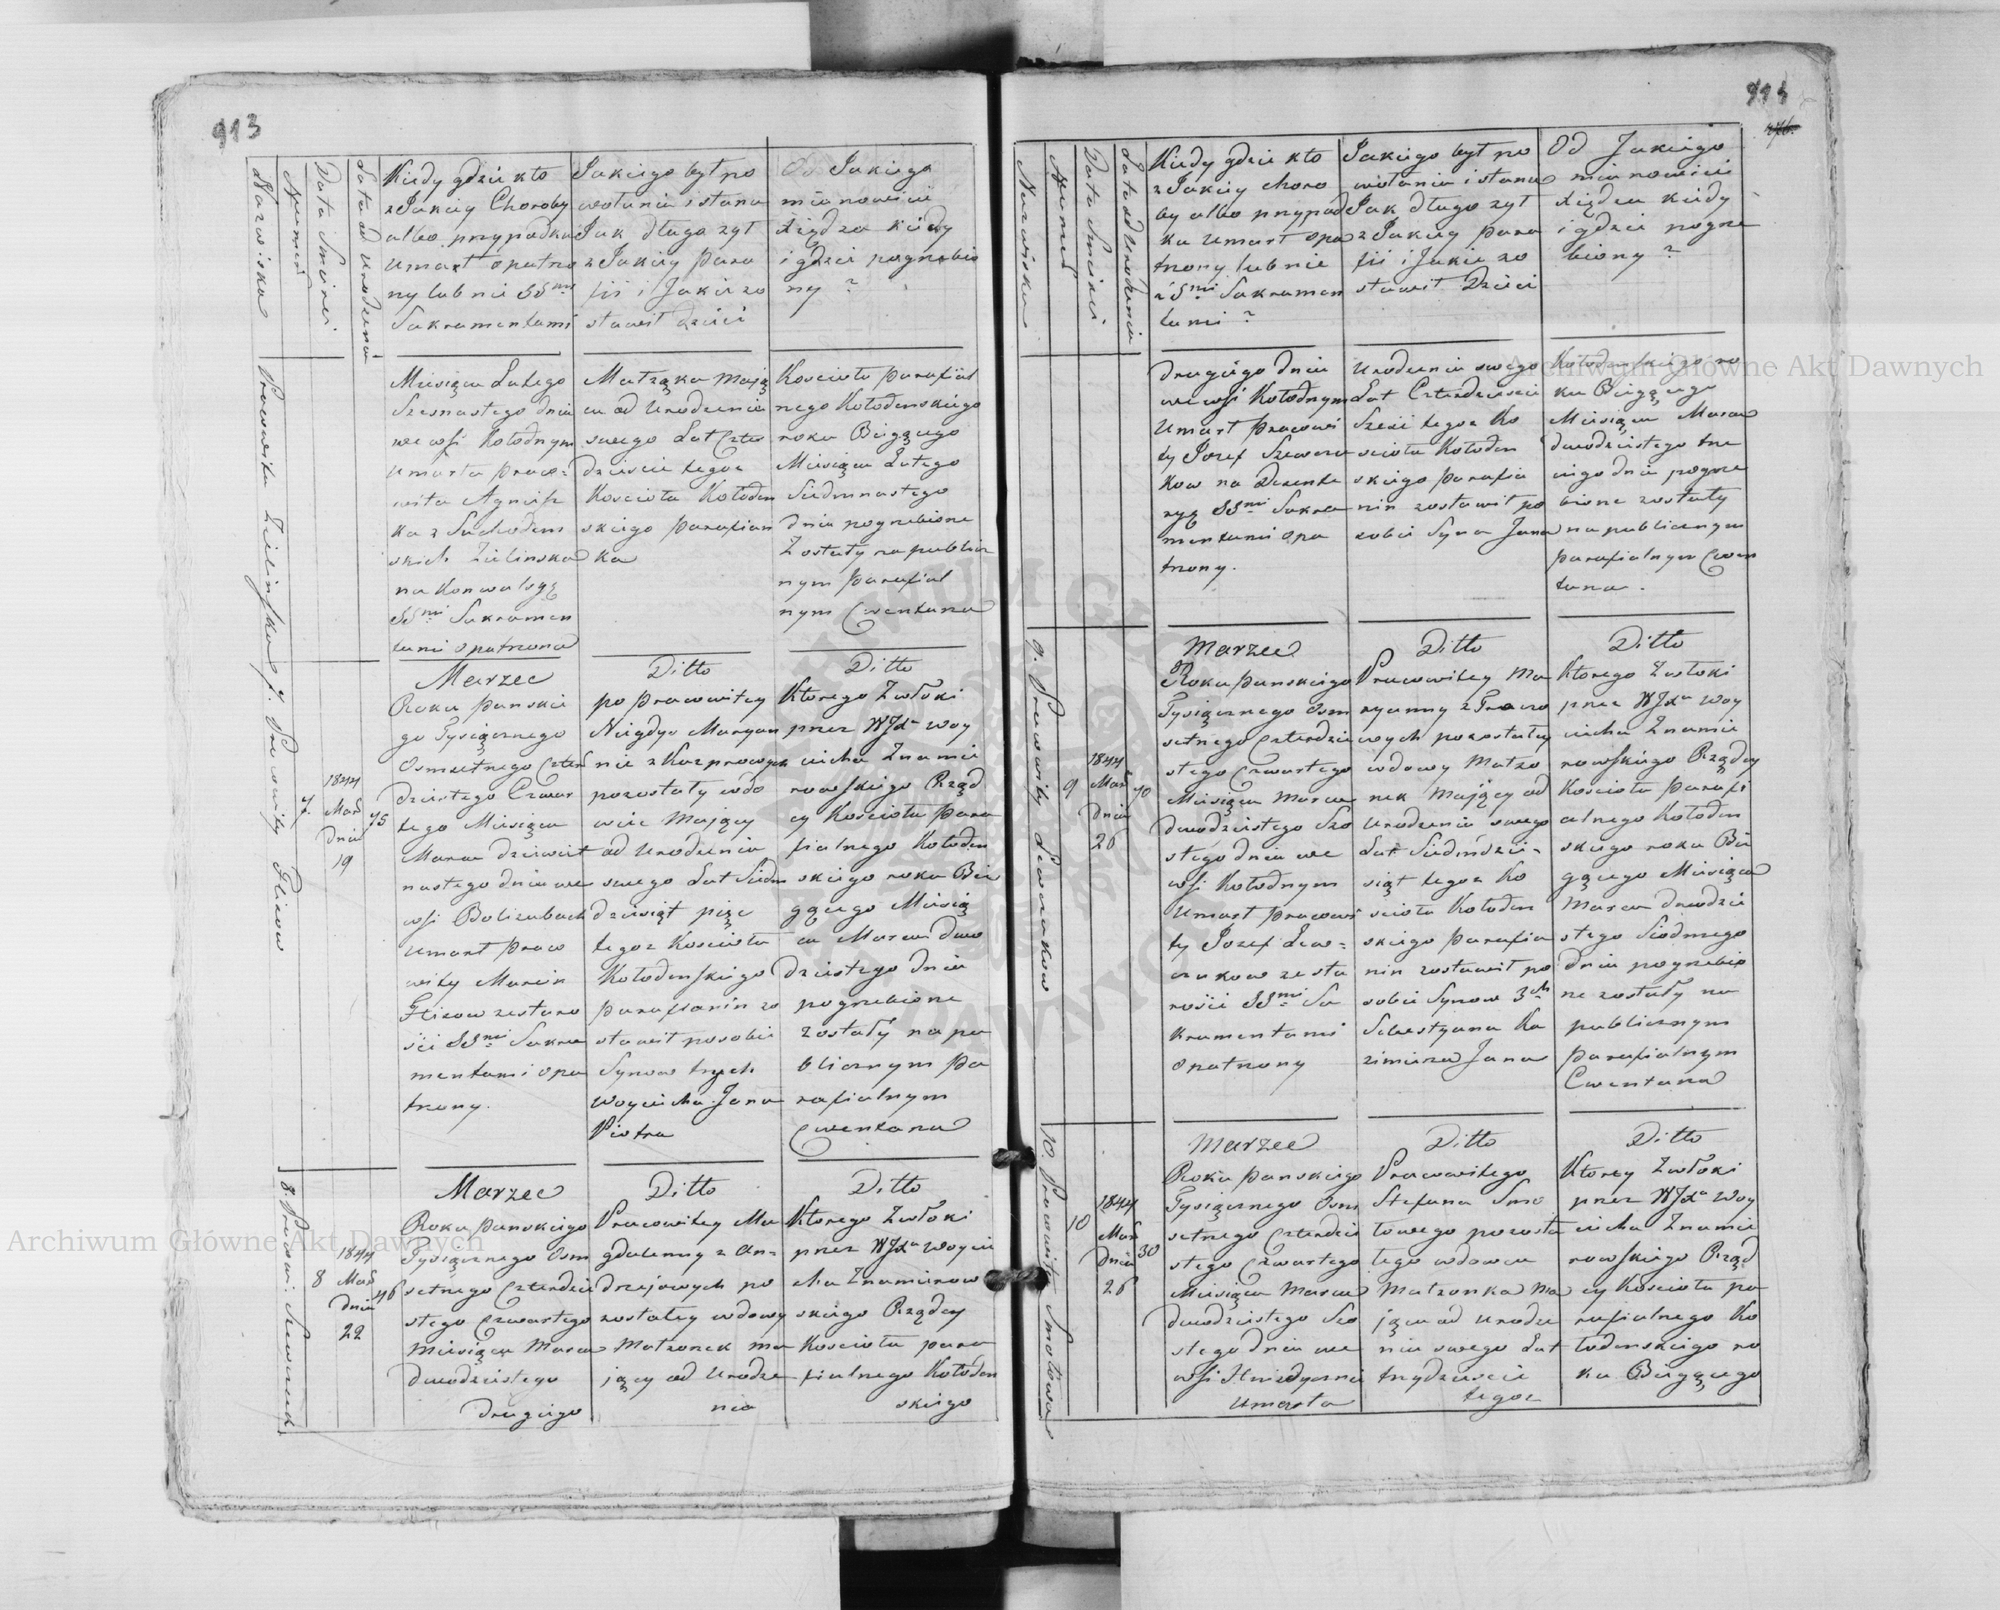 913
Nazwisko
Numer
Data Smierci
Lata od urodzenia
Kiedy gdzie kto
z Jakiey Choroby
albo przypadku
umarł opatrzo
ny lub nie SSmi
Sakramentami
Jakiego był po
wołania i stanu
Jak długo żył
z Jakiey Para
fii i Jakie zo
stawił Dzieci
Od Jakiego
mianowicie
Xiędza kiedy
i gdzie pogrzebio
ny ?
Pracowita Zielinska
Miesiąca Lutego
Szesnastego dnia
we wsi Kołodnym
umarła praco=
wita Agniesz
ka z Suchodem
skich Zielinska
na Konwulsyę
SSmi Sakramen
tami opatrzona
Małżąka mają
ca od urodzenia
swego Lat Czter
dzieście tegoż
Kościoła Kołoden
skiego parafian
ka
Kościoła parafial
nego Kołodenskiego
roku Bieżącego
Miesiąca Lutego
Siedmnastego
dnia pogrzebione
Zostały na publicz
nym parafial
nym Cwentarza
7. Pracowity Hliwow
7.
1844
Mar
Dnia
19
75
Marzec
Roku panskie
go Tysiącznego
Osmsetnego Czter
dziestego Czwar
tego Miesiąca
Marca dziewięt
nastego dnia we
wsi Bolizubach
umarł praco
wity Marcin
Hliwow ze staro
ści SSmi Sakra
mentami opa
trzony.
Ditto
po pracowitey
Niegdys Maryan
nie z Kasprowych
pozostały wdo
wiec Mający
od urodzenia
swego Lat Siedm
dziesiąt pięc
tegoż Kościoła
Kołodenskiego
parafianin zo
stawił po sobie
Synow trzech
Woyciecha Jana
Piotra
Ditto
Ktorego Zwłoki
przez WJXa Woy
ciecha Znamie
rowskiego Rząd
cy Kościoła para
fialnego Kołoden
skiego roku Bie
żącego Miesią
ca Marca dwo
dziestego dnia
pogrzebione
zostały na pu
blicznym pa
rafialnym
Cwentarza
8. Pracowi: Szewczuk
8
1844
Mar
Dnia
22
46
Marzec
Roku panskiego
Tysiącznego Osm
setnego Czterdzie
stego Czwartego
Miesiąca Marca
Dwodziestego
Drugiego
Ditto
Pracowitey Ma
gdalenny z An=
drejowych po
zostałey wdowy
Małżonek ma
jący od urodze
nia
Ditto
Ktorego Zwłoki
przez WJXa Woycie
cha Znamierow
skiego Rządcy
Kościoła para
fialnego Kołoden
skiego
Nazwisko
Numer
Data Smierci
Lata od urodzenia
Kiedy gdzie kto
z Jakiey choro
by albo przypad
ku umarł opa
trzony lub nie
z Smi Sakramen
tami ?
Jakiego był po
wołania i stanu
Jak długo żył
z Jakiey para
fii i Jakie zo
stawił Dzieci
Od Jakiego
mianowicie
Xiędza kiedy
i gdzie pogrze
biony ?
drugiego dnia
we wsi Kołodnym
umarł pracowi
ty Jozef Szewczu
kow na Dezente
ryą SSmi Sakra
mentami opa
trzony.
urodzenia swego
Lat Czterdzieście
Sześć tegoż Ko
ścioła Kołoden
skiego parafia
nin zostawił po
sobie Syna Jana
Kołodenskiego ro
ku Bieżącego
Miesiąca Marca
dwodziestego trze
ciego dnia pogrze
bione zostały
na publicznym
parafialnym Cwen
tarza.
9. Pracowity Lewczukow
9
1844
Mar
Dnia
26
70
Marzec
Roku panskiego
Tysiącznego Osm
setnego Czterdzie
stego Czwartego
Miesiąca Marca
dwodziestego Szo
stego dnia we
wsi Kołodnym
umarł pracowi
ty Jozef Lew=
czukow ze sta
rości SSmi Sa
kramentami
opatrzony
Ditto
Pracowitey Ma
ryanny z Traczo
wych pozostałey
wdowy Małżo
nek mający od
urodzenia swego
Lat Siedmdzie=
siąt tegoż Ko
ścioła Kołoden
skiego parafia
nin zostawił po
sobie Synow 3ch
Sebestyana Ka
zimierza Jana
Ditto
Ktorego Zwłoki
przez WJXa Woy
ciecha Znamie
rowskiego Rządcy
Kościoła parafi
alnego Kołoden
skiego roku Bie
żącego Miesiąca
Marca dwodzie
stego Siodmego
dnia pogrzebio
ne zostały na
publicznym
parafialnym
Cwentarza
10. Pracowita Smotowa
10
1844
Mar
Dnia
26
30
Marzec
Roku panskiego
Tysiącznego Osm
setnego Czterdzie
stego Czwartego
Miesiąca Marca
Dwodziestego Szo
stego dnia we
wsi Hniedyczni
umarła
Ditto
Pracowitego
Stefana Smo
towego pozosta
łego wdowca
Małżonka ma
jąca od urodze
nia swego Lat
trzydzieście
tegoż
Ditto
Ktorey Zwłoki
przez WJXa Woy
ciecha Znamie
rowskiego Rząd
cy Kościoła pa
rafialnego Ko
łodenskiego ro
ku Bieżącego
Archiwum Główne Akt Dawnych
Archiwum Główne Akt Dawnych